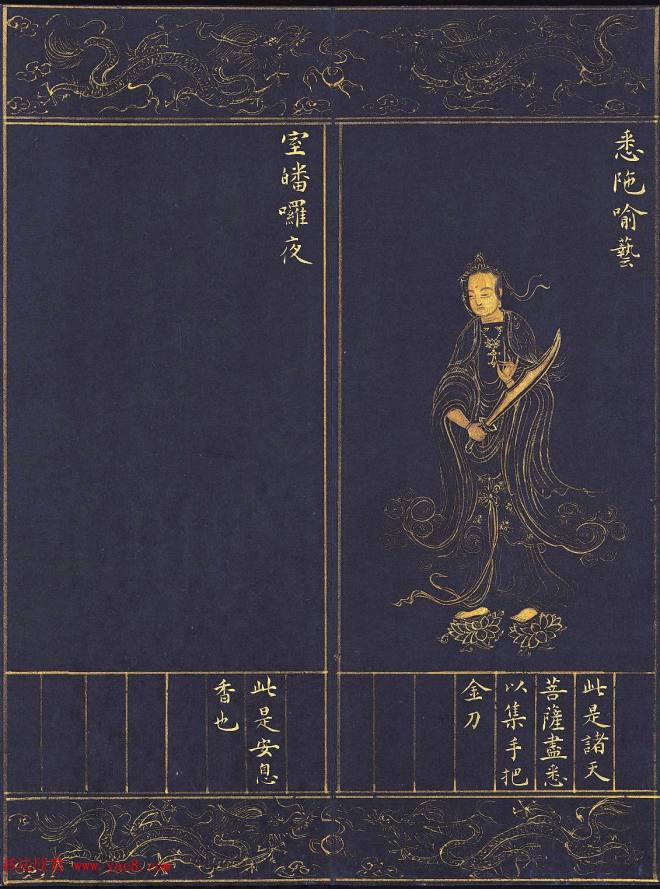 悉陁喻藝
此是諸天
菩薩盡悉
以集手把
金刀
室皤囉夜
此是安息
香也
www.yac8.com